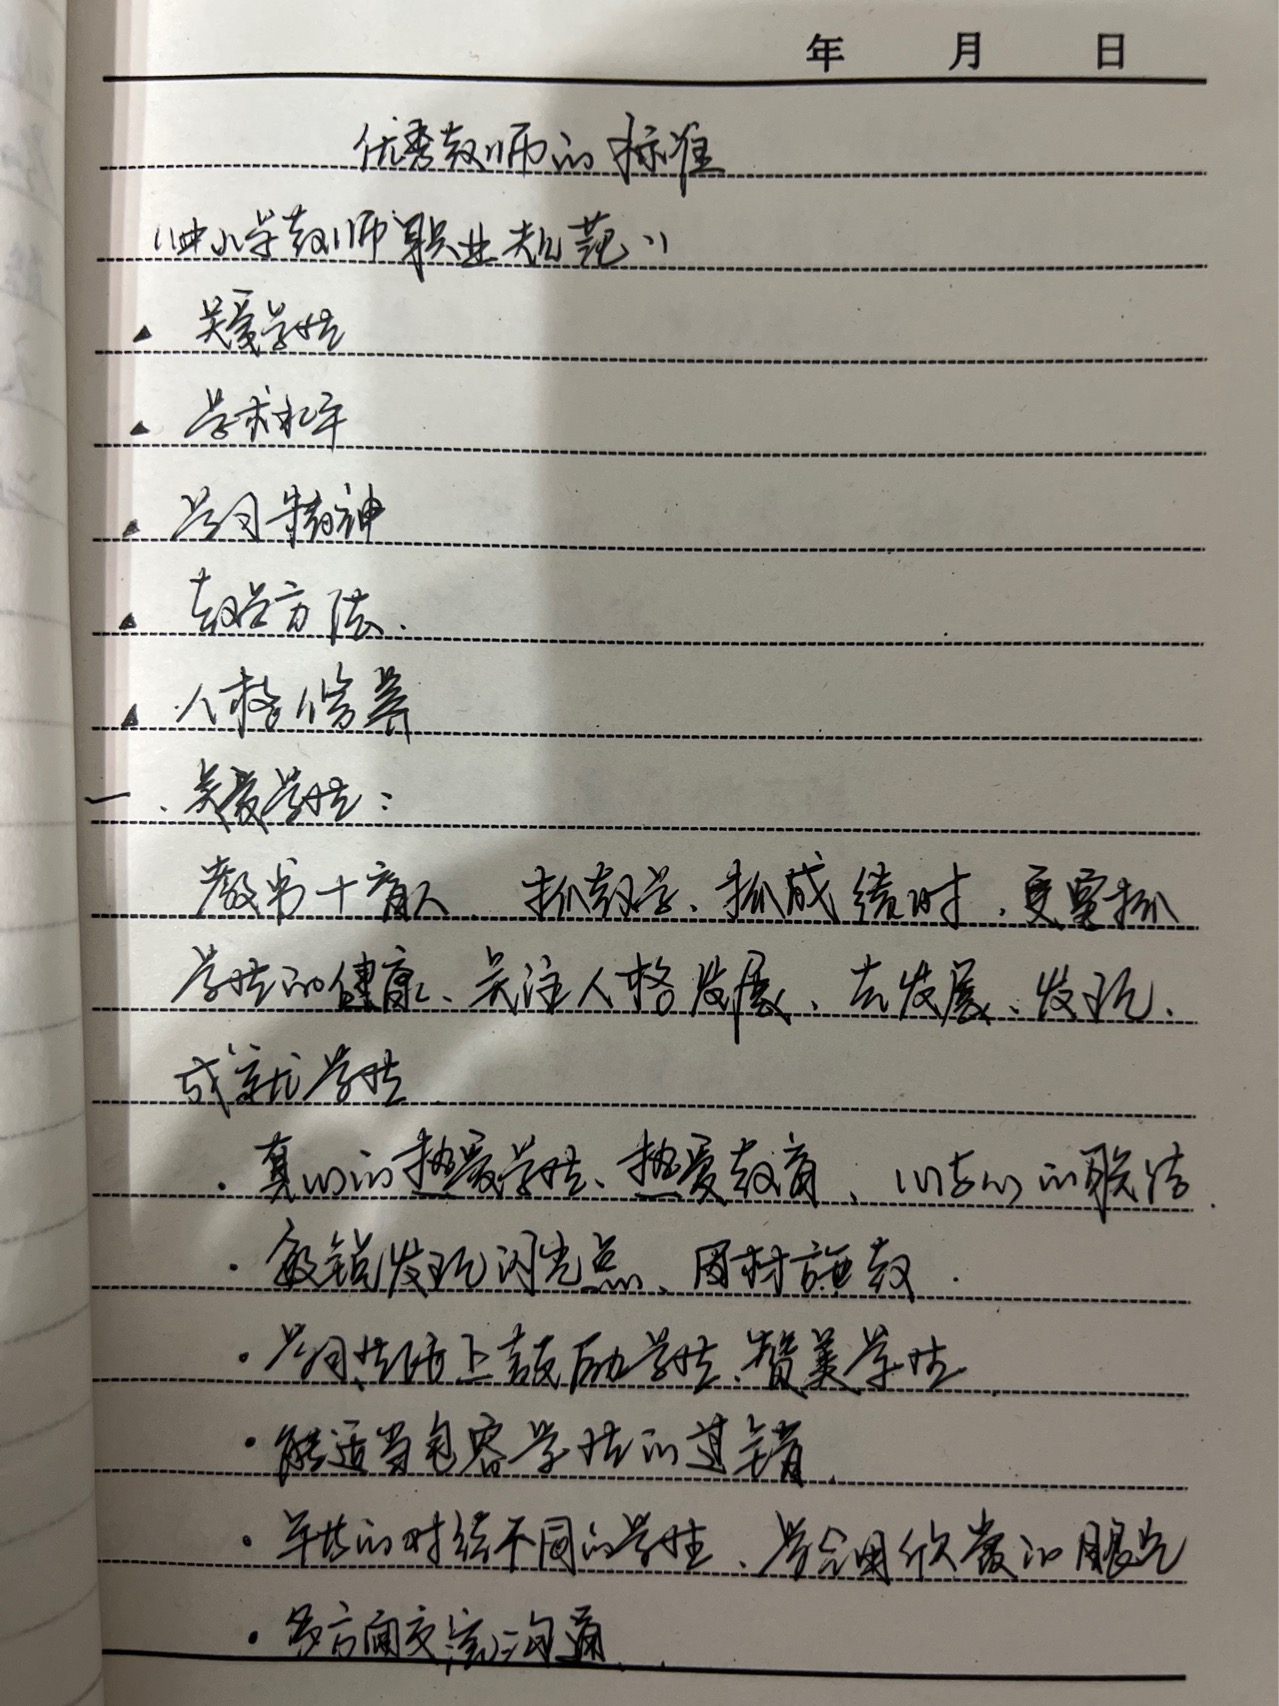 年 月 日
优秀教师的标准
《中小学教师职业规范》
▲ 关爱学生
▲ 学术水平
▲ 学习精神
▲ 教学方法.
▲ 人格修养
一、关爱学生:
教书十育人、抓教学、抓成绩时、更要抓
学生的健康、关注人格发展、去发展、发现、
成就学生
· 真心的热爱学生、热爱教育、心与心的联结.
· 敏锐发现闪光点、因材施教.
· 学习生活上鼓励学生、赞美学生
· 能适当包容学生的过错.
· 平等的对待不同的学生、学会用欣赏的眼光
· 多方面交流沟通.